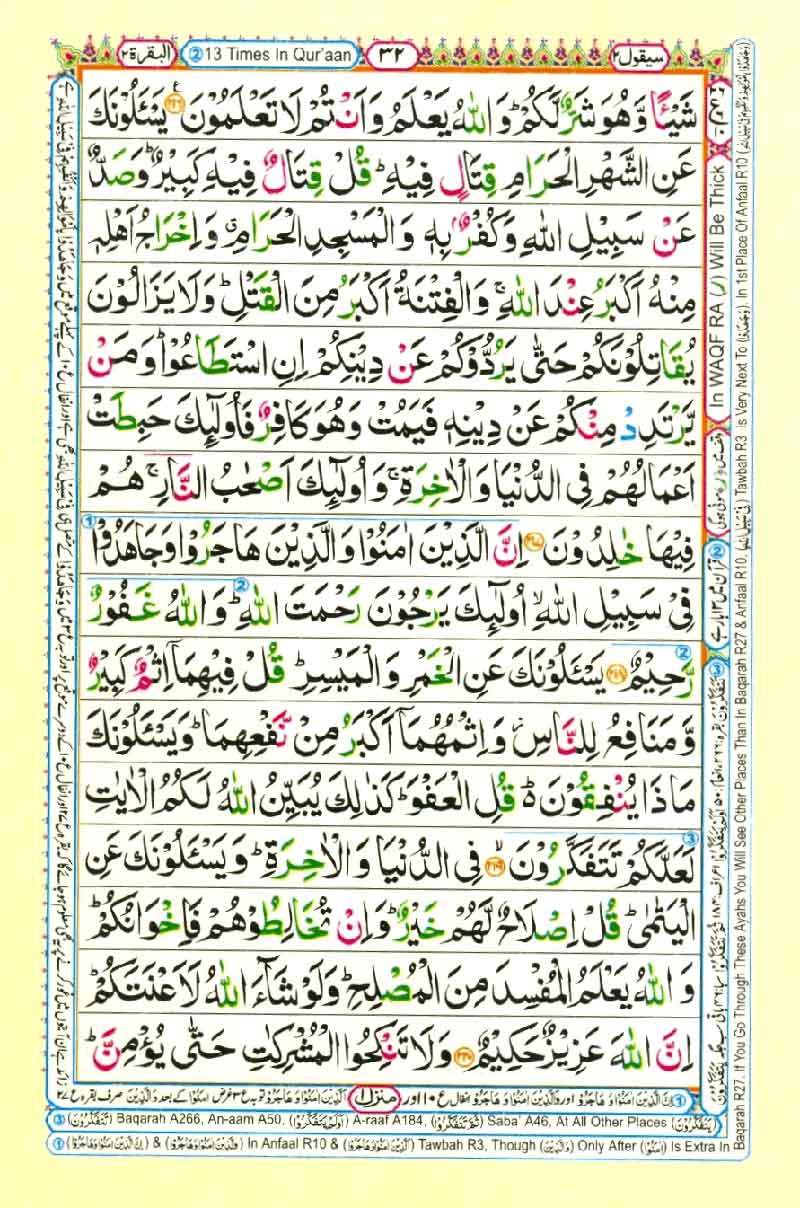 البقرة ٢
② 13 Times In Qur'aan
٣٢
سيقول ٢
شَيْـًٔا وَّهُوَ شَرٌّ لَّكُمْ ؕ وَاللّٰهُ يَعْلَمُ وَاَنْتُمْ لَا تَعْلَمُوْنَ ﴿۲۱۶﴾ يَسْـَٔلُوْنَكَ
عَنِ الشَّهْرِ الْحَرَامِ قِتَالٍ فِيْهِ ؕ قُلْ قِتَالٌ فِيْهِ كَبِيْرٌ ؕ وَصَدٌّ
عَنْ سَبِيْلِ اللّٰهِ وَكُفْرٌۢ بِهٖ وَالْمَسْجِدِ الْحَرَامِ ۗ وَاِخْرَاجُ اَهْلِهٖ
مِنْهُ اَكْبَرُ عِنْدَ اللّٰهِ ۚ وَالْفِتْنَةُ اَكْبَرُ مِنَ الْقَتْلِ ؕ وَلَا يَزَالُوْنَ
يُقَاتِلُوْنَكُمْ حَتّٰى يَرُدُّوْكُمْ عَنْ دِيْنِكُمْ اِنِ اسْتَطَاعُوْا ؕ وَمَنْ
يَّرْتَدِدْ مِنْكُمْ عَنْ دِيْنِهٖ فَيَمُتْ وَهُوَ كَافِرٌ فَاُولٰٓئِكَ حَبِطَتْ
اَعْمَالُهُمْ فِى الدُّنْيَا وَالْاٰخِرَةِ ۚ وَاُولٰٓئِكَ اَصْحٰبُ النَّارِ ۚ هُمْ
فِيْهَا خٰلِدُوْنَ ﴿۲۱۷﴾ اِنَّ الَّذِيْنَ اٰمَنُوْا وَالَّذِيْنَ هَاجَرُوْا وَجَاهَدُوْا
فِىْ سَبِيْلِ اللّٰهِ ۙ اُولٰٓئِكَ يَرْجُوْنَ رَحْمَتَ اللّٰهِ ؕ وَاللّٰهُ غَفُوْرٌ
رَّحِيْمٌ ﴿۲۱۸﴾ يَسْـَٔلُوْنَكَ عَنِ الْخَمْرِ وَالْمَيْسِرِ ؕ قُلْ فِيْهِمَاۤ اِثْمٌ كَبِيْرٌ
وَّمَنَافِعُ لِلنَّاسِ ۫ وَاِثْمُهُمَاۤ اَكْبَرُ مِنْ نَّفْعِهِمَا ؕ وَيَسْـَٔلُوْنَكَ
مَاذَا يُنْفِقُوْنَ ؕ قُلِ الْعَفْوَ ؕ كَذٰلِكَ يُبَيِّنُ اللّٰهُ لَكُمُ الْاٰيٰتِ
لَعَلَّكُمْ تَتَفَكَّرُوْنَ ﴿۲۱۹﴾ فِى الدُّنْيَا وَالْاٰخِرَةِ ؕ وَيَسْـَٔلُوْنَكَ عَنِ
الْيَتٰمٰى ؕ قُلْ اِصْلَاحٌ لَّهُمْ خَيْرٌ ؕ وَاِنْ تُخَالِطُوْهُمْ فَاِخْوَانُكُمْ ؕ
وَاللّٰهُ يَعْلَمُ الْمُفْسِدَ مِنَ الْمُصْلِحِ ؕ وَلَوْ شَآءَ اللّٰهُ لَاَعْنَتَكُمْ ؕ
اِنَّ اللّٰهَ عَزِيْزٌ حَكِيْمٌ ﴿۲۲۰﴾ وَلَا تَنْكِحُوا الْمُشْرِكٰتِ حَتّٰى يُؤْمِنَّ ؕ
In WAQF RA (ر) Will Be Thick
منزل ١
③ (يَتَفَكَّرُوْنَ) Baqarah A266, An-aam A50, (اَوَلَمْ يَتَفَكَّرُوْا) A-raaf A184, (ثُمَّ تَتَفَكَّرُوْا) Saba' A46, At All Other Places (يَتَفَكَّرُوْنَ)
① (اِنَّ الَّذِيْنَ اٰمَنُوْا وَهَاجَرُوْا) & In Anfaal R10 & Tawbah R3, Though (وَالَّذِيْنَ) Only After (اٰمَنُوْا) Is Extra In
Baqarah R27. If You Go Through These Ayahs You Will See Other Places Than In Baqarah R27 & Anfaal R10, (فِيْ سَبِيْلِ اللّٰهِ) Tawbah R3 Is Very Next To (وَجَاهَدُوْا) In 1st Place Of Anfaal R10